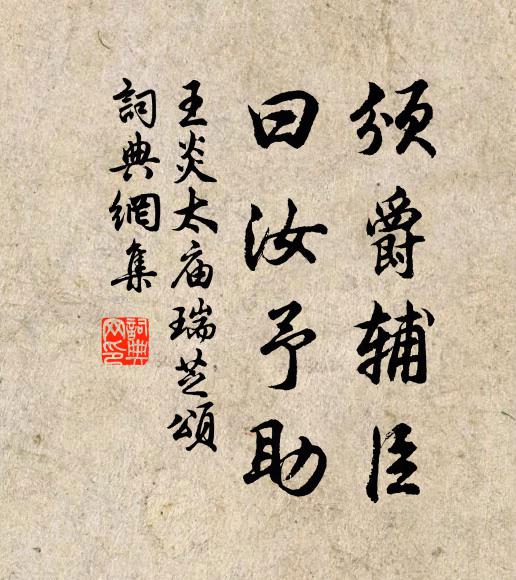 颁爵辅臣
曰汝予助
王炎太庙瑞芝頌
詞典網集
詞典
网印